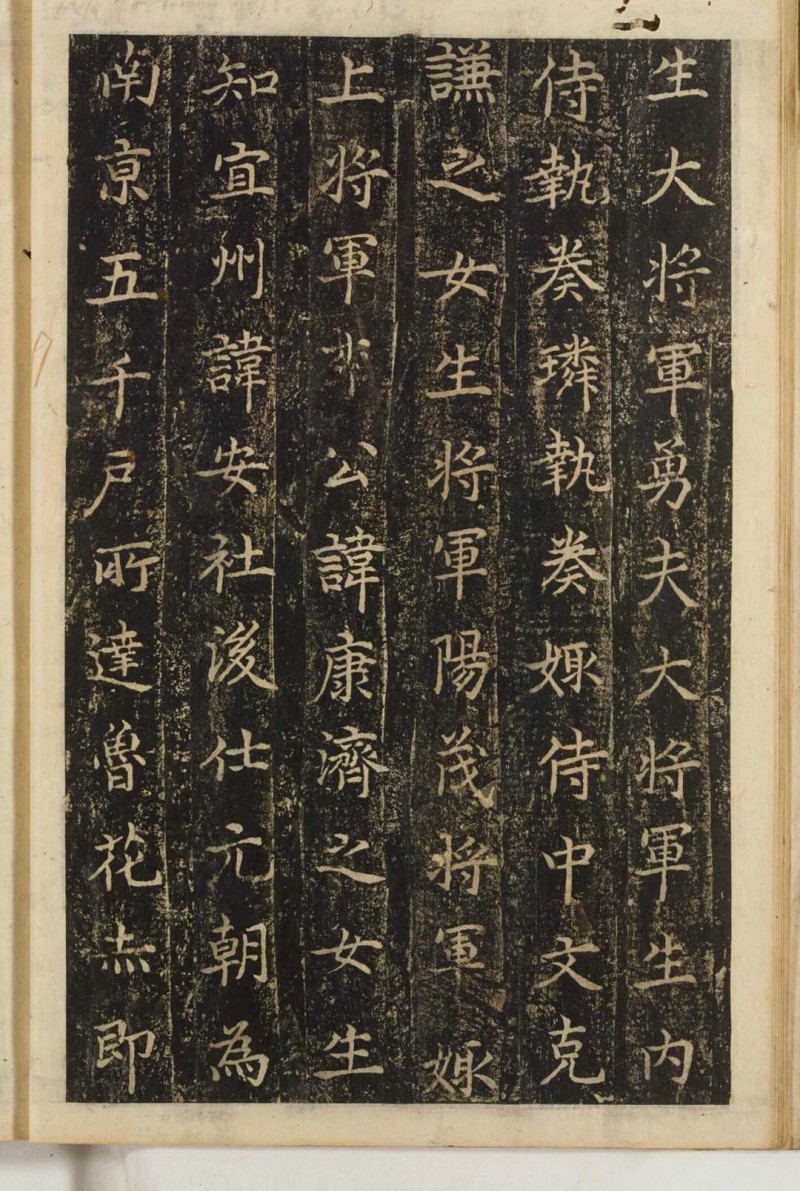 生大将軍勇夫大将軍生内
侍執奏璘執奏娵侍中文克
謙之女生将軍陽茂将軍娵
上将軍公諱康濟之女生
知宜州諱安社後仕元朝為
南京五千户所達魯花赤即